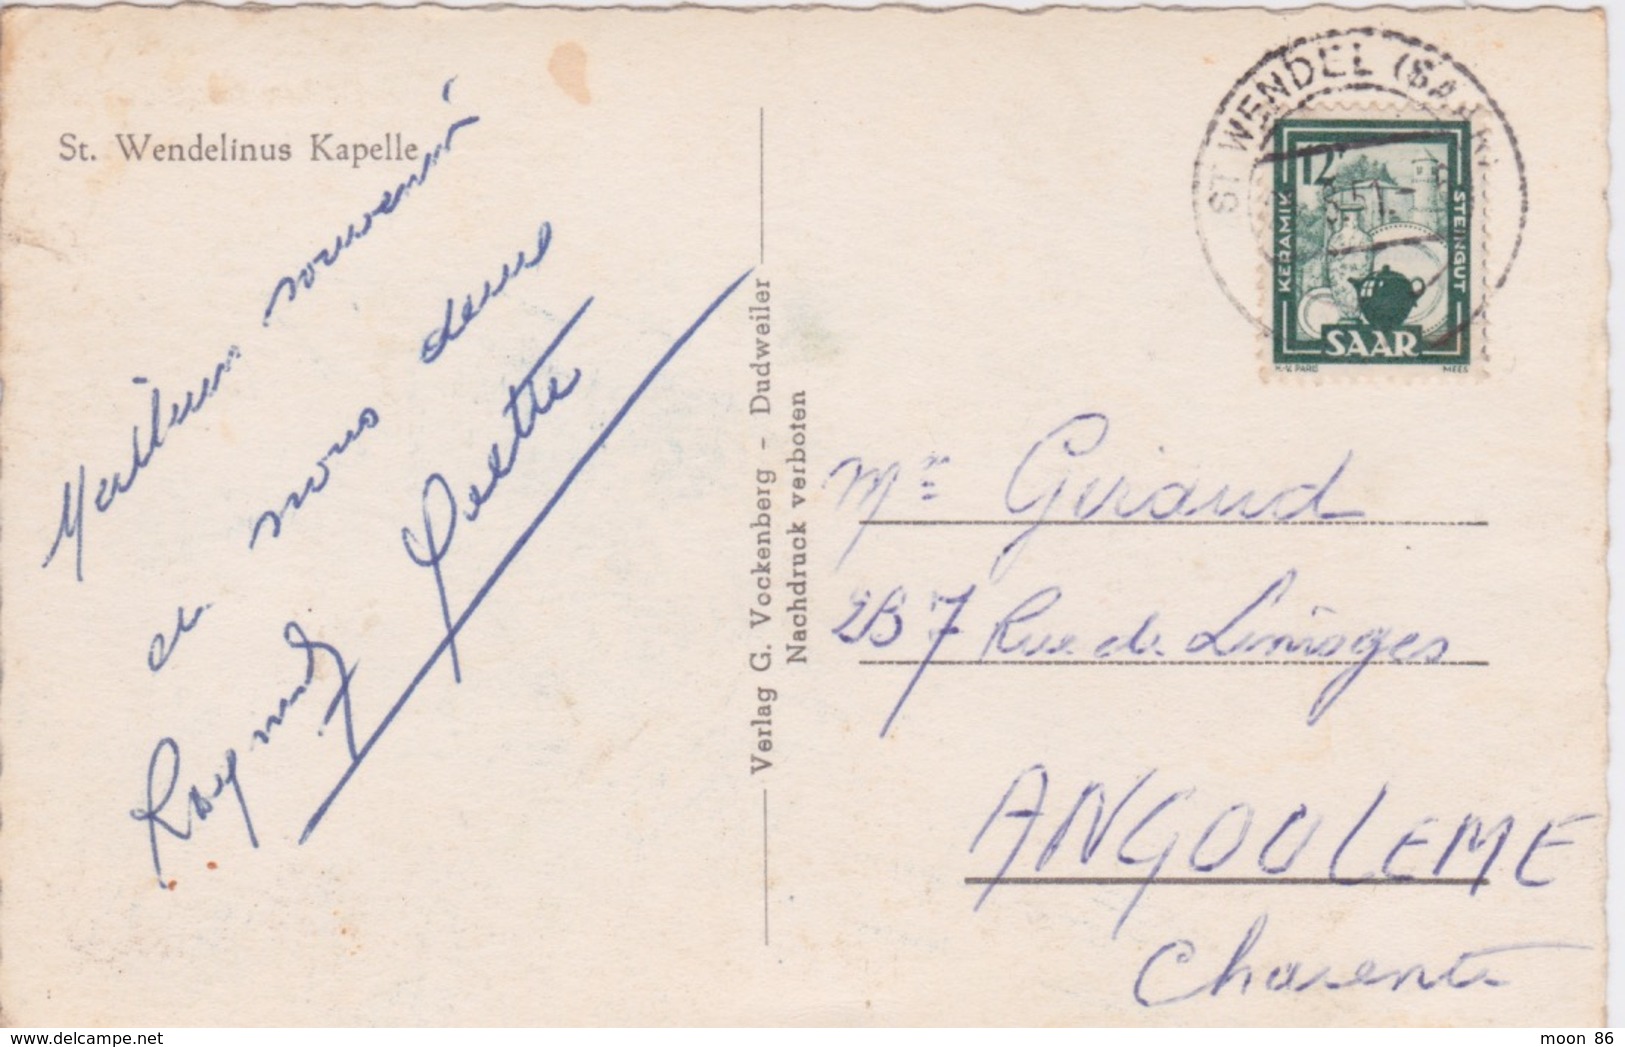 St. Wendelinus Kapelle
Meilleurs souvenirs
de nous deux
Raymond
Odette
Verlag G. Vockenberg - Dudweiler
Nachdruck verboten
ST. WENDEL (SAAR)
12
KERAMIK
STEINGUT
SAAR
H.V. PARIS
MEES
Mr Giraud
237 Rue de Limoges
ANGOULEME
Charente
www.delcampe.net
moon 86